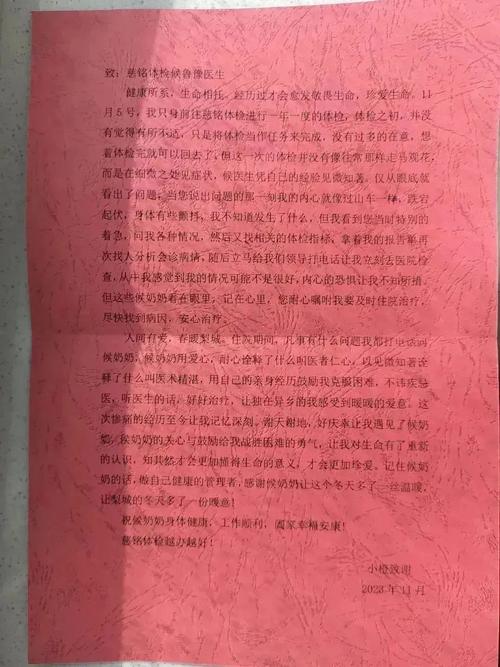 致：慈铭体检候鲁豫医生
健康所系，生命相托。经历过才会愈发敬畏生命，珍爱生命。11
月5号，我只身前往慈铭体检进行一年一度的体检，体检之初，并没
有觉得有所不适，只是将体检当作任务来完成，没有过多的在意，想
着体检完就可以回去了，但这一次的体检并没有像往常那样走马观花，
而是在细微之处见症状，候医生凭自己的经验见微知著。仅从眼底就
看出了问题，当您说出问题的那一刻我的内心就像过山车一样，跌宕
起伏，身体有些颤抖，我不知道发生了什么，但我看到您当时特别的
着急，问我各种情况，然后又找相关的体检指标，拿着我的报告单再
次找人分析会诊病情，随后立马给我们领导打电话让我立刻去医院检
查，从中我感觉到我的情况可能不是很好，内心的恐惧让我不知所措。
但这些候奶奶看在眼里，记在心里，您耐心嘱咐我要及时住院治疗，
尽快找到病因，安心治疗。
人间有爱，春暖梨城。住院期间，凡事有什么问题我都打电话问
候奶奶，候奶奶用爱心，耐心诠释了什么叫医者仁心，以见微知著诠
释了什么叫医术精湛，用自己的亲身经历鼓励我克服困难，不讳疾忌
医，听医生的话，好好治疗，让独在异乡的我感受到暖暖的爱意。这
次惨痛的经历至今让我记忆深刻。谢天谢地，好庆幸让我遇见了候奶
奶，候奶奶的关心与鼓励给我战胜困难的勇气，让我对生命有了重新
的认识，知其然才会更加懂得生命的意义，才会更加珍爱。记住候奶
奶的话，做自己健康的管理者，感谢候奶奶让这个冬天多了一丝温暖，
让梨城的冬天多了一份暖意！
祝候奶奶身体健康，工作顺利，阖家幸福安康！
慈铭体检越办越好！
小橙致谢
2023年11月